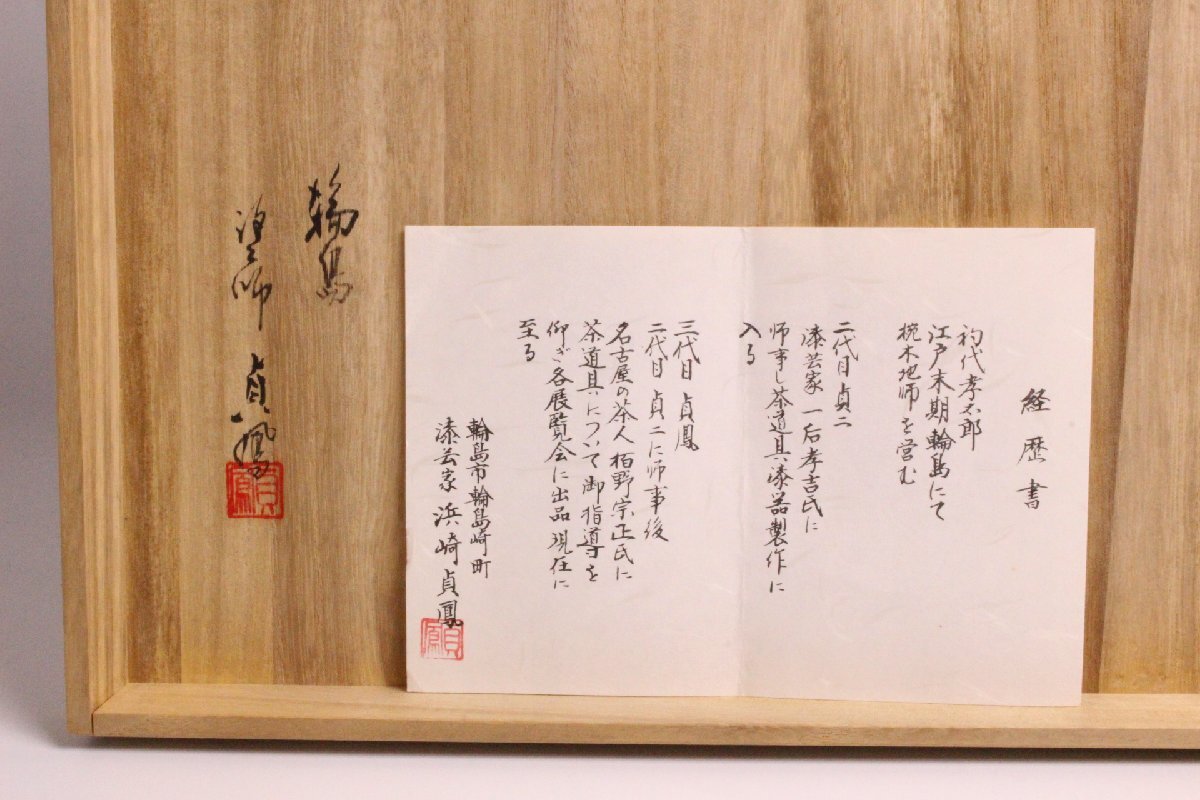 経歴書
初代孝太郎
江戸末期輪島にて
椀木地師を営む
二代目貞二
漆芸家一后孝吉氏に
師事し茶道具漆器製作に
入る
三代目貞鳳
二代目貞二に師事後
名古屋の茶人栢野宗正氏に
茶道具について御指導を
仰ぎ各展覧会に出品現在に
至る
輪島市輪島崎町
漆芸家浜崎貞鳳
輪島
塗師貞鳳